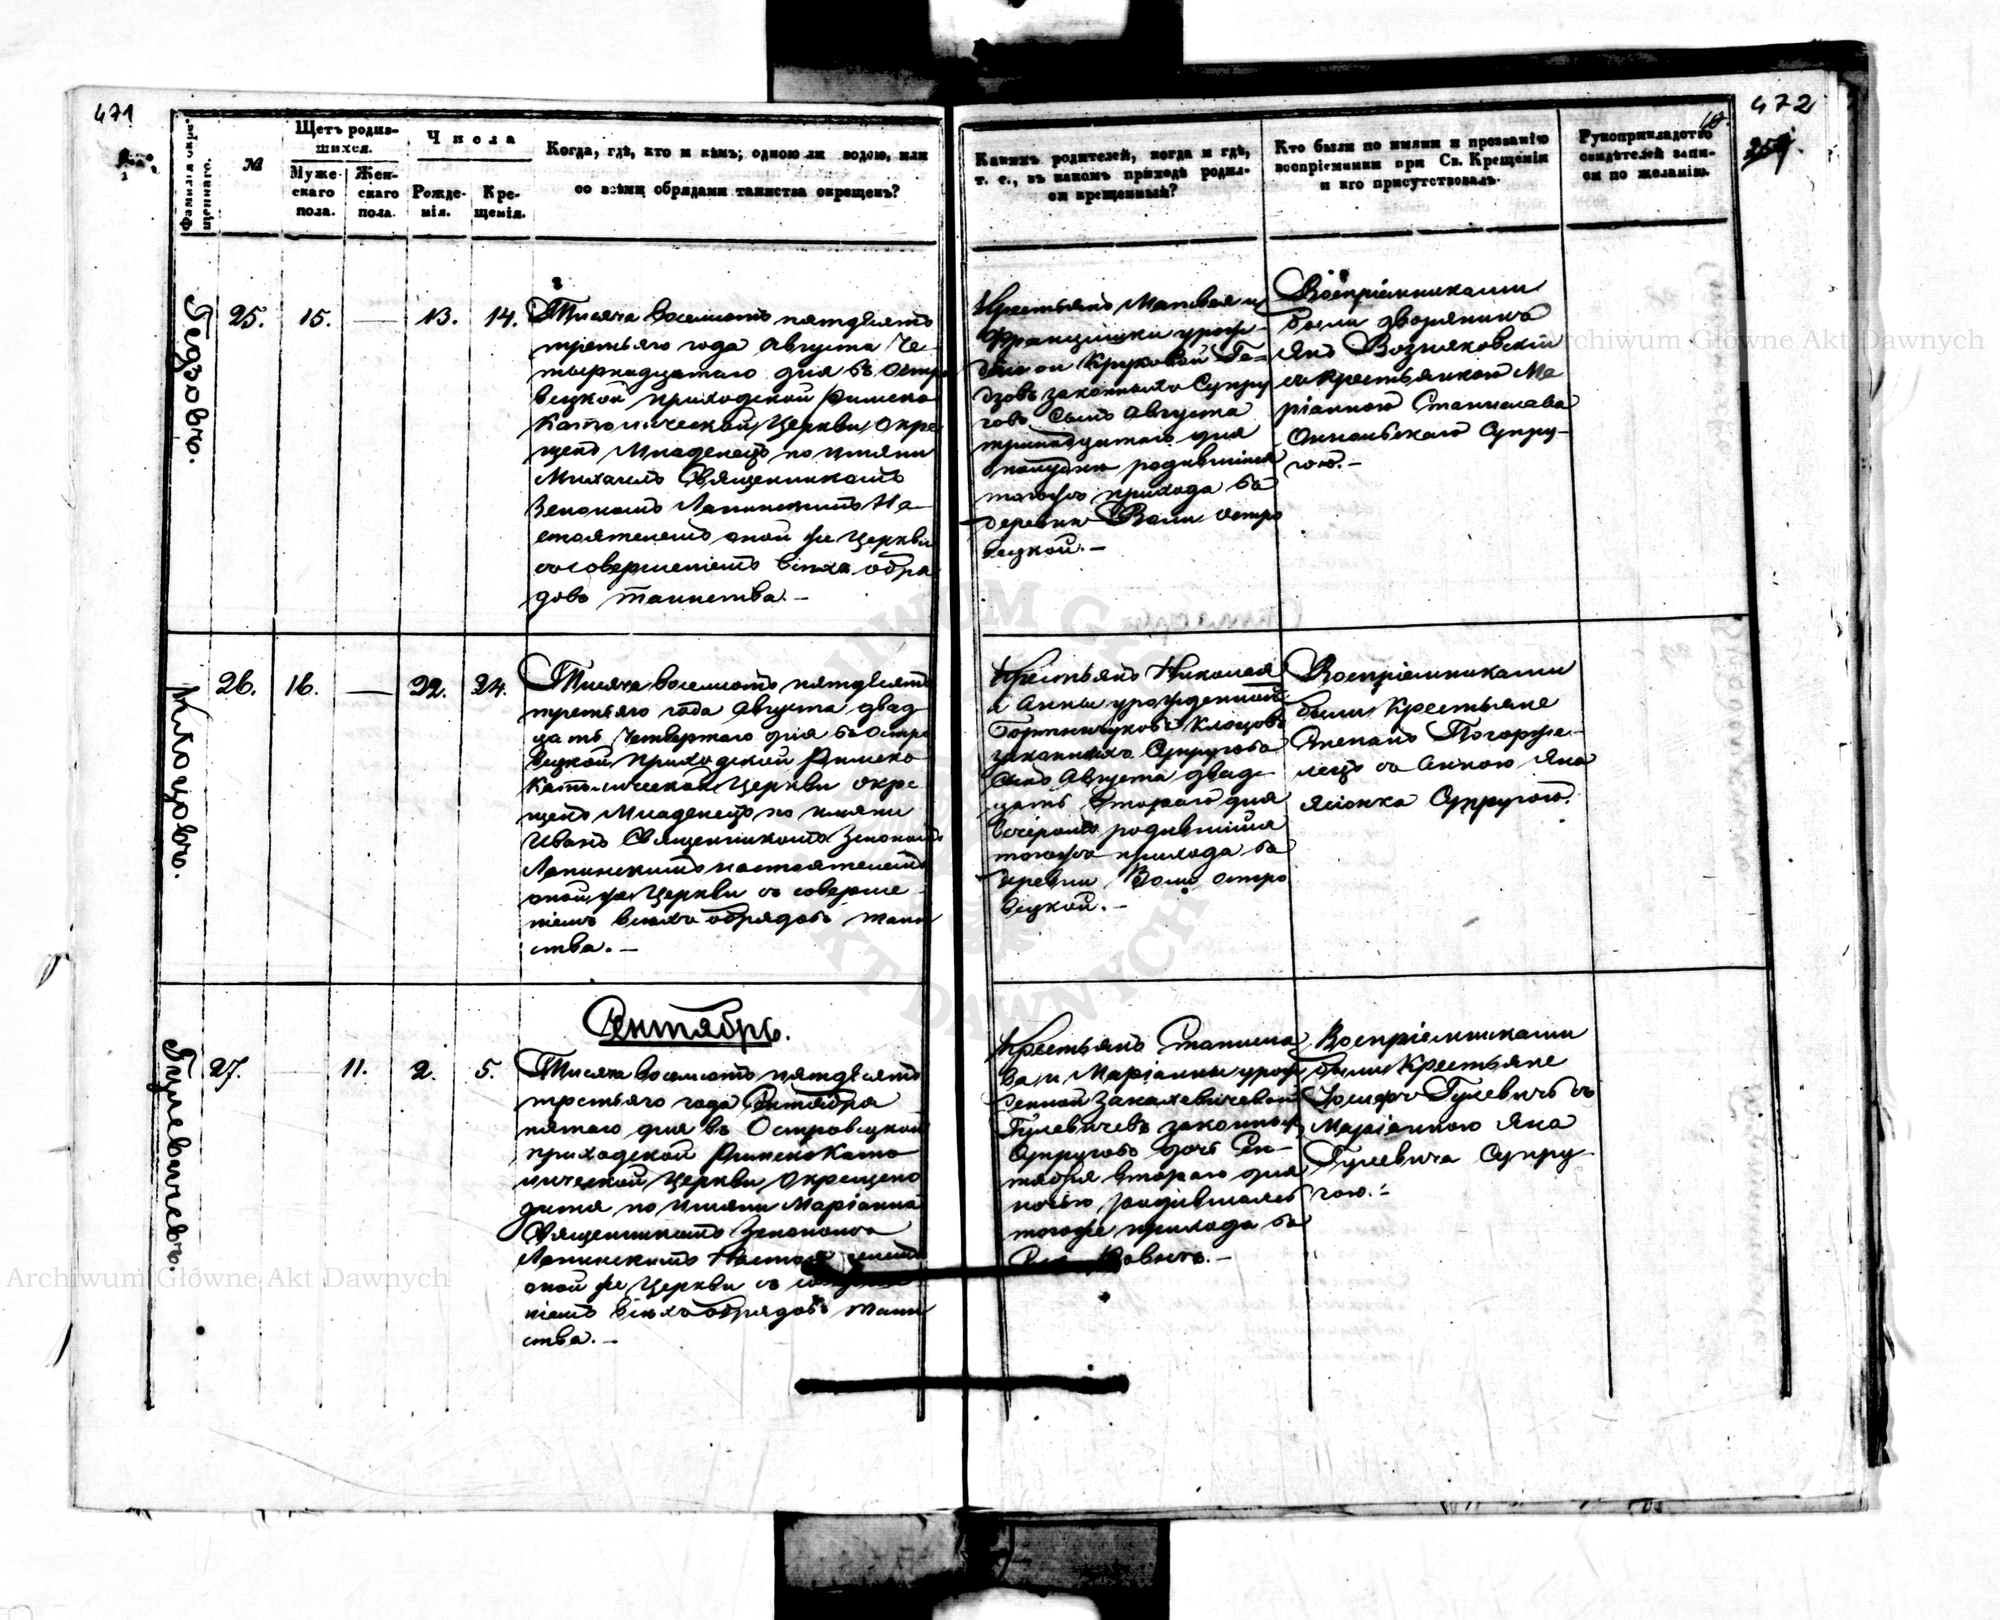 471
Фамилія окре-
щеннаго.
№
Щетъ родив-
шихся.
Муже-
скаго
пола.
Жен-
скаго
пола.
Числа
Рожде-
нія.
Кре-
щенія.
Когда, гдѣ, кто и кѣмъ; одною ли водою, или
со всѣми обрядами таинства окрещенъ?
25.
15.
—
13.
14.
Тысяча восемьсотъ пятдесятъ
третьяго года Августа Че-
тырнадцатаго дня въ Остро
вецкой приходской Римско
Католической Церкви окре
щенъ Младенецъ по имяни
Михаилъ Священникомъ
Зенономъ Лапинскимъ На-
стоятелемъ оной же Церкви
съ совершеніемъ всѣхъ обря
довъ таинства.-
26.
16.
—
22.
24.
Тысяча восемьсотъ пятдесятъ
третьяго года Августа двад
цать Четвертаго дня въ Остро
вецкой приходской Римско
Католической Церкви окре
щенъ Младенецъ по имяни
Иванъ Священникомъ Зенономъ
Лапинскимъ настоятелемъ
оной же Церкви съ соверше
ніемъ всѣхъ обрядовъ таин
ства.-
Сентябрь.
27.
—
11.
2.
5.
Тысяча восемьсотъ пятдесятъ
третьяго года Сентября
пятаго дня въ Островецкой
приходской Римско Като
лической Церкви окрещено
дитя по имяни Маріанна
Священникомъ Зенономъ
Лапинскимъ
оной же Церкви съ
ніемъ всѣхъ обрядовъ таин
ства.-
472
Какихъ родителей, когда и гдѣ,
т. е., въ какомъ приходѣ родил-
ся крещенный?
Кто были по имяни и прозванію
воспріемники при Св. Крещеніи
и кто присутствовалъ.
Рукоприкладство
свидѣтелей запи-
си по желанію.
Крестьянъ Матвея и
Францишки урож-
Ге-
дзовъ законныхъ Супру
говъ сынъ Августа
тринадцатаго дня
родившійся
тогожъ прихода въ
деревни Воли Остро
вецкой.-
Воспріемниками
были дворянинъ
Янъ Возняковскій
съ крестьянкою Ма
ріанною Станислава
Супру-
гою.-
Крестьянъ Николая
и Анны урожденной
Клоцовъ
законныхъ Супруговъ
сынъ Августа двад-
цать втораго дня
вечеромъ родившійся
тогожъ прихода въ
деревни Воли Остро
вецкой.-
Воспріемниками
были Крестьяне
Степанъ Погорже-
лецъ съ Анною Яна
Супругою.
Крестьянъ Станисла
ва и Маріанны урож
денной Закалевичевой
Гулевичевъ законныхъ
Супруговъ дочь Сен-
тября втораго дня
ночью родившаяся
тогоже прихода въ
Воспріемниками
были Крестьяне
Іосифъ Гулевичъ съ
Маріанною Яна
Гулевича Супру-
гою.-
Archiwum Główne Akt Dawnych
Archiwum Główne Akt Dawnych